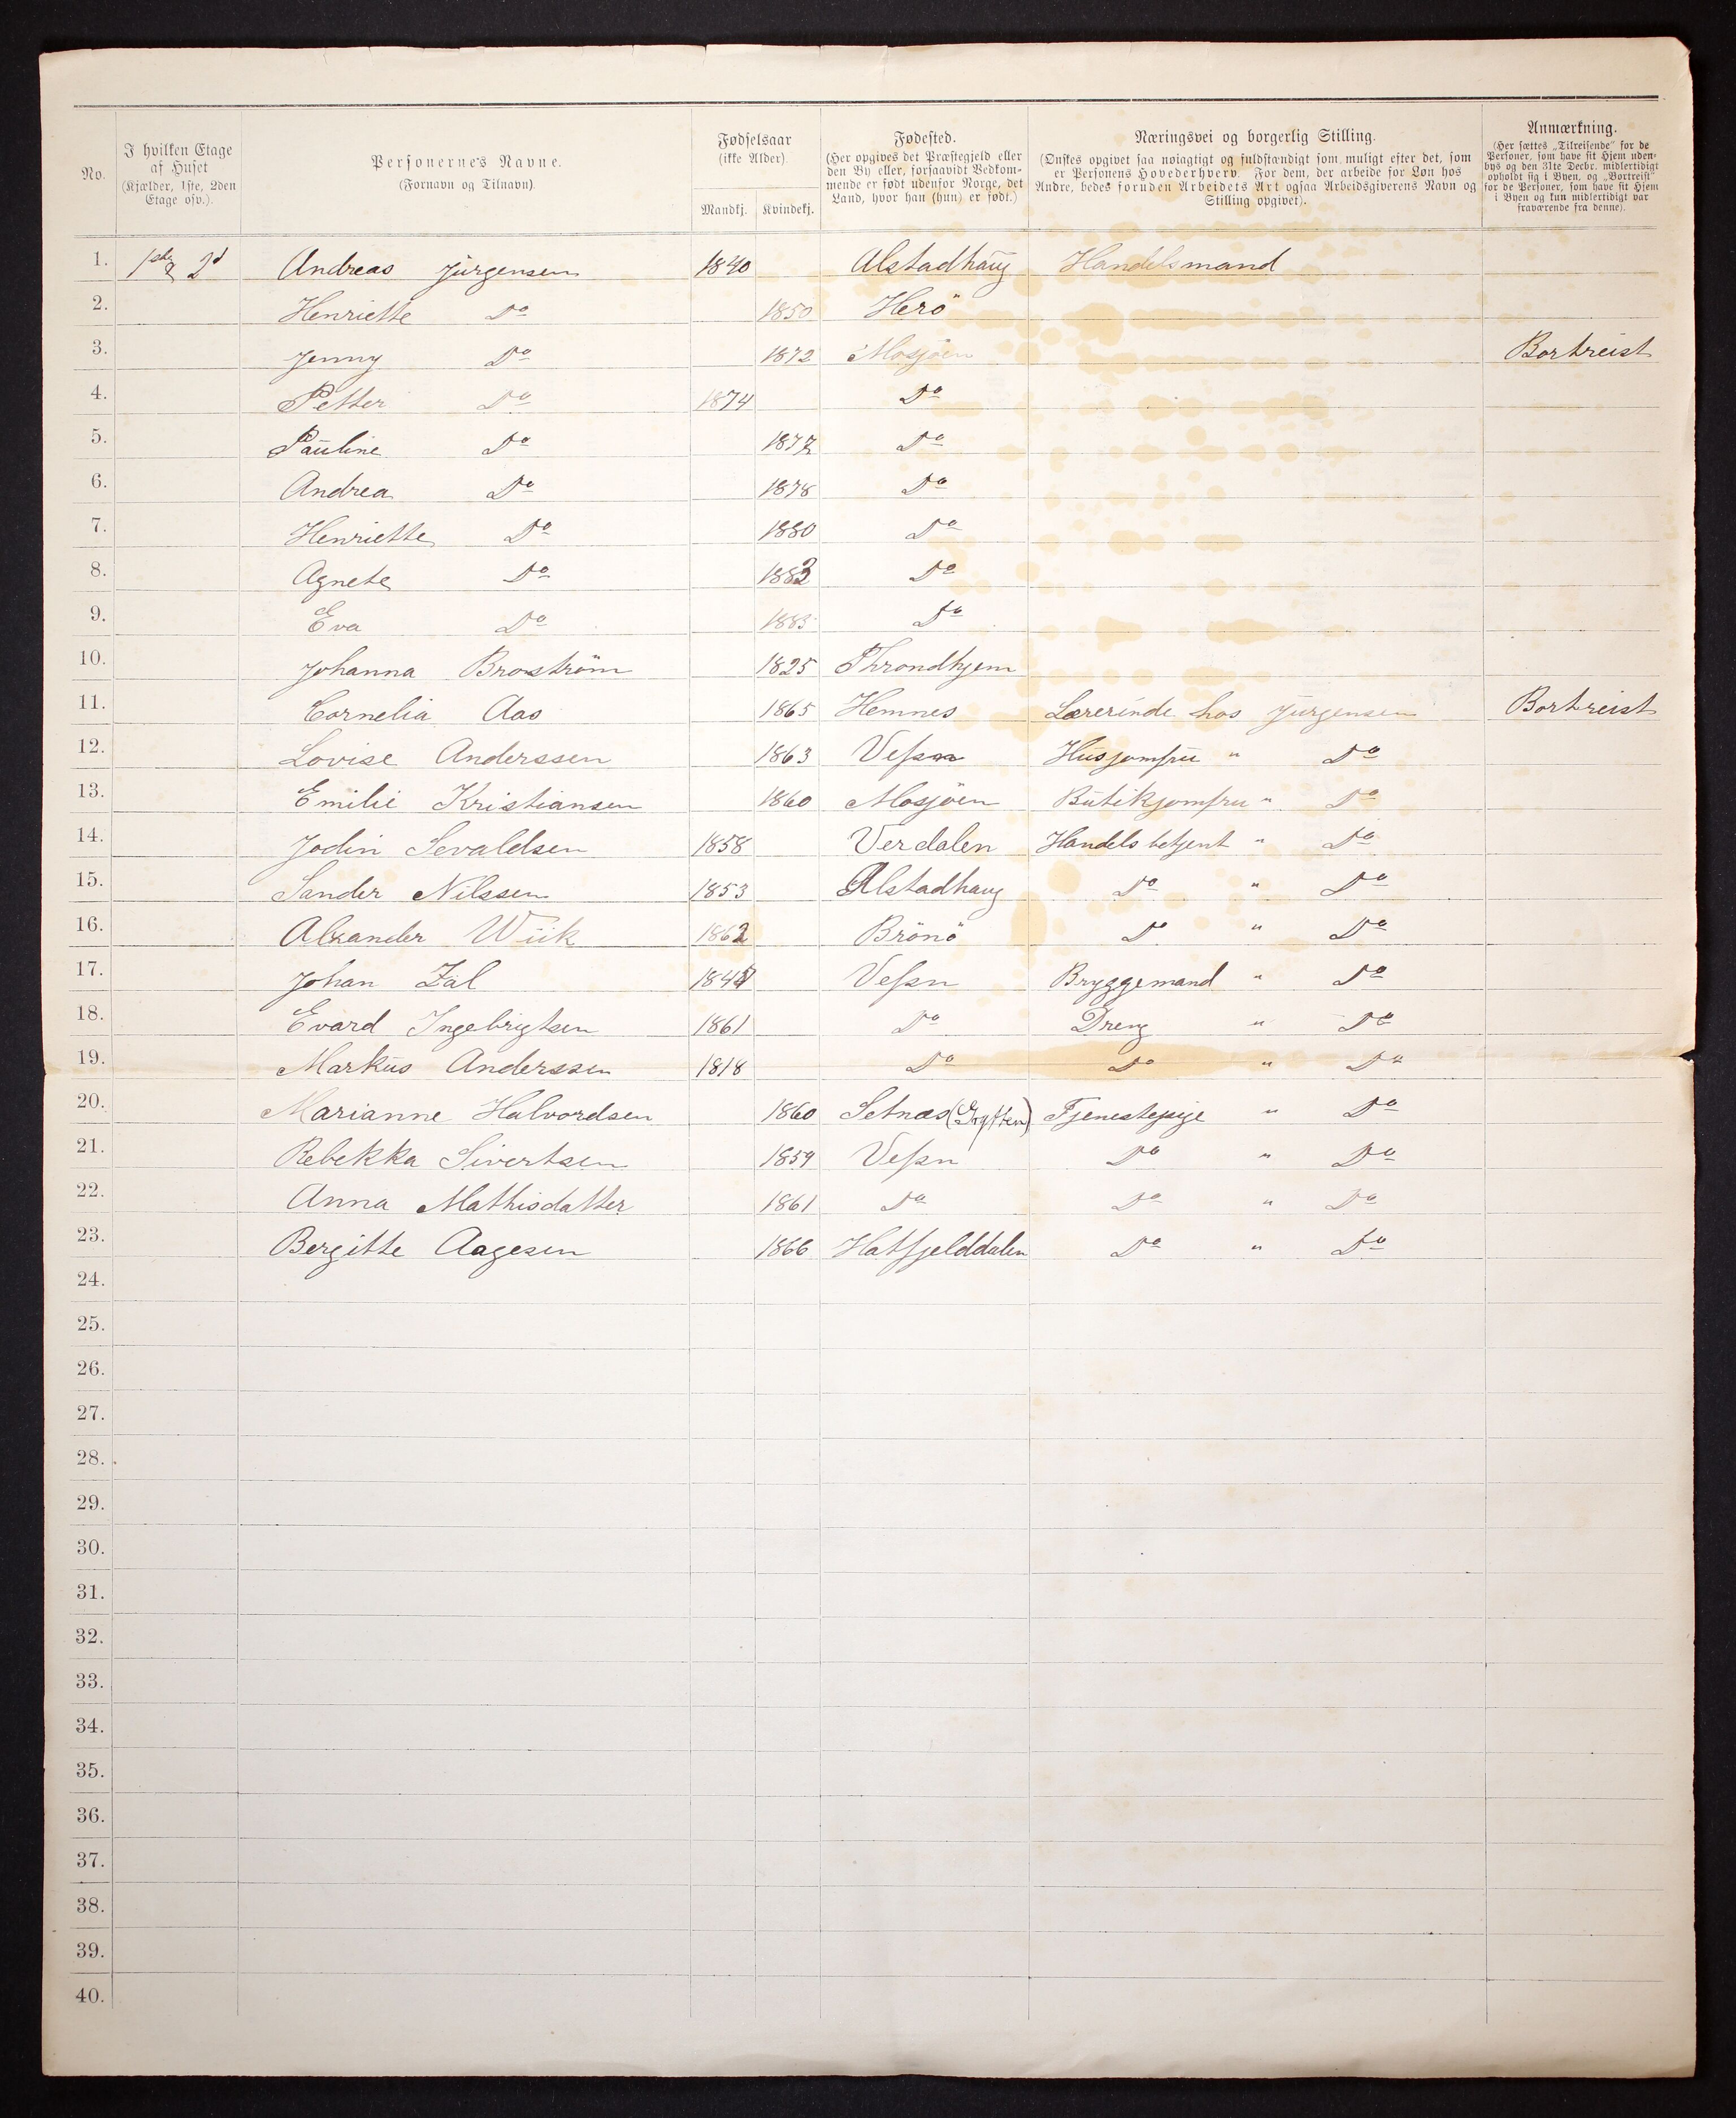 No. | I hvilken Etage af Huset (Kjælder, 1ste, 2den Etage osv.). | Personernes Navne. (Fornavn og Tilnavn) | Fødselsaar (ikke Alder) Mandkj. | Kvindekj. | Fødested. (Her opgives det Præstegjeld eller den By eller, forsaavidt Vedkommende er født udenfor Norge, det Land, hvor han (hun) er født.) | Næringsvei og borgerlig Stilling. (Ønskes opgivet saa nøiagtigt og fuldstændigt som muligt efter det, som er Personens Hovederhverv. For dem, der arbeide for Løn hos Andre, bedes foruden Arbeidets Art ogsaa Arbeidsgiverens Navn og Stilling opgivet). | Anmærkning. (Her sættes „Tilreisende" for de Personer, som have sit Hjem udenbys og den 31te Decbr. midlertidigt opholdt sig i Byen, og „Bortreist" for de Personer, som have sit Hjem i Byen og kun midlertidigt var fraværende fra denne).
1. 1ste & 2d Andreas Jürgensen 1840 Alstadhaug Handelsmand
2. Henriette Do 1850 Herö
3. Jenny Do 1872 Mosjöen Bortreist
4. Petter Do 1874 Do
5. Pauline Do 1877 Do
6. Andrea Do 1878 Do
7. Henriette Do 1880 Do
8. Agnete Do 1883 Do
9. Eva Do 1885 Do
10. Johanna Broström 1825 Throndhjem
11. Cornelia Aas 1865 Hemnes Lærerinde hos Jürgensen Bortreist
12. Lovise Anderssen 1863 Vefsn Husjomfru " Do
13. Emilie Kristiansen 1860 Mosjöen Butikjomfru " Do
14. Jodin Sevaldsen 1858 Verdalen Handelsbetjent " Do
15. Sander Nilssen 1853 Alstadhaug Do " Do
16. Alexander Wiik 1862 Brönö Do " Do
17. Johan Zal Vefsn Bryggemand " Do
18. Evard Ingebrigtsen 1861 Do Dreng " Do
19. Markus Anderssen 1818 Do Do " Do
20. Marianne Halvordsen 1860 Setnæs Tjenestepige " Do
21. Rebekka Sivertsen 1859 Vefsn Do " Do
22. Anna Mathisdatter 1861 Do Do " Do
23. Bergitte Aagesen 1866 Hatfjelddalen Do " Do
24.
25.
26.
27.
28.
29.
30.
31.
32.
33.
34.
35.
36.
37.
38.
39.
40.